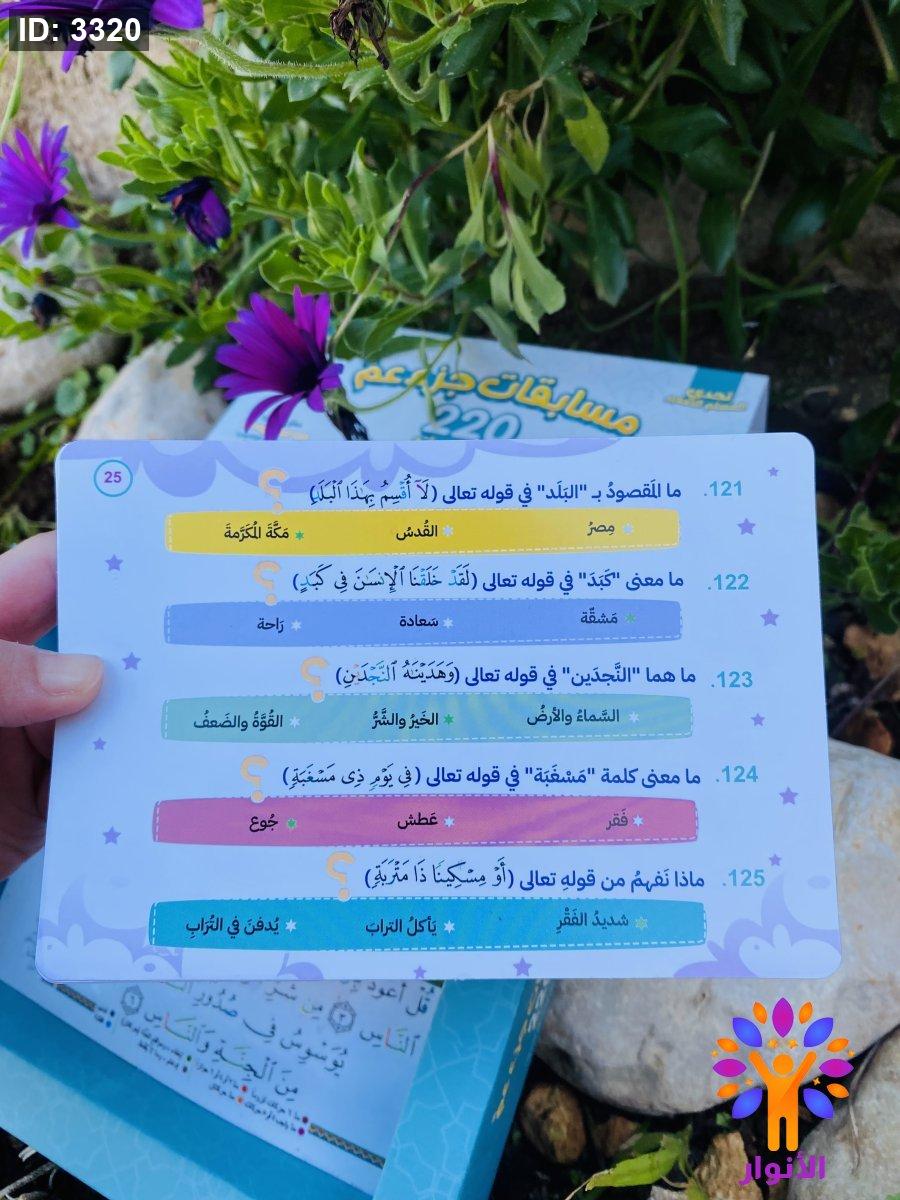 ID: 3320
مسابقات جزء عم
220
تحدي
25
121. ما المَقصودُ بـ "البَلَد" في قوله تعالى (لَآ أُقۡسِمُ بِهَٰذَا ٱلۡبَلَدِ) ؟
مِصرُ * القُدسُ * مَكَّةَ المُكَرَّمةَ *
122. ما معنى "كَبَدَ" في قوله تعالى (لَقَدۡ خَلَقۡنَا ٱلۡإِنسَٰنَ فِي كَبَدٍ) ؟
* مَشقّة * سَعادة * رَاحة
123. ما هما "النَّجدَين" في قوله تعالى (وَهَدَيۡنَٰهُ ٱلنَّجۡدَيۡنِ) ؟
* السَّماءُ والأرضُ * الخَيرُ والشَّرُّ * القُوَّةُ والضَعفُ
124. ما معنى كلمة "مَسْغَبَة" في قوله تعالى (فِي يَوۡمٖ ذِي مَسۡغَبَةٖ) ؟
* فَقر * عَطش * جُوع
125. ماذا نَفهمُ من قولهِ تعالى (أَوۡ مِسۡكِينٗا ذَا مَتۡرَبَةٖ) ؟
* شديدُ الفَقْرِ * يَأكلُ الترابَ * يُدفنَ في التُرَابِ
قُلۡ أَعُوذُ
ٱلنَّاسِ
مِن شَرِّ
يُوَسۡوِسُ فِي صُدُورِ
مِنَ ٱلۡجِنَّةِ وَٱلنَّاسِ
الأنوار